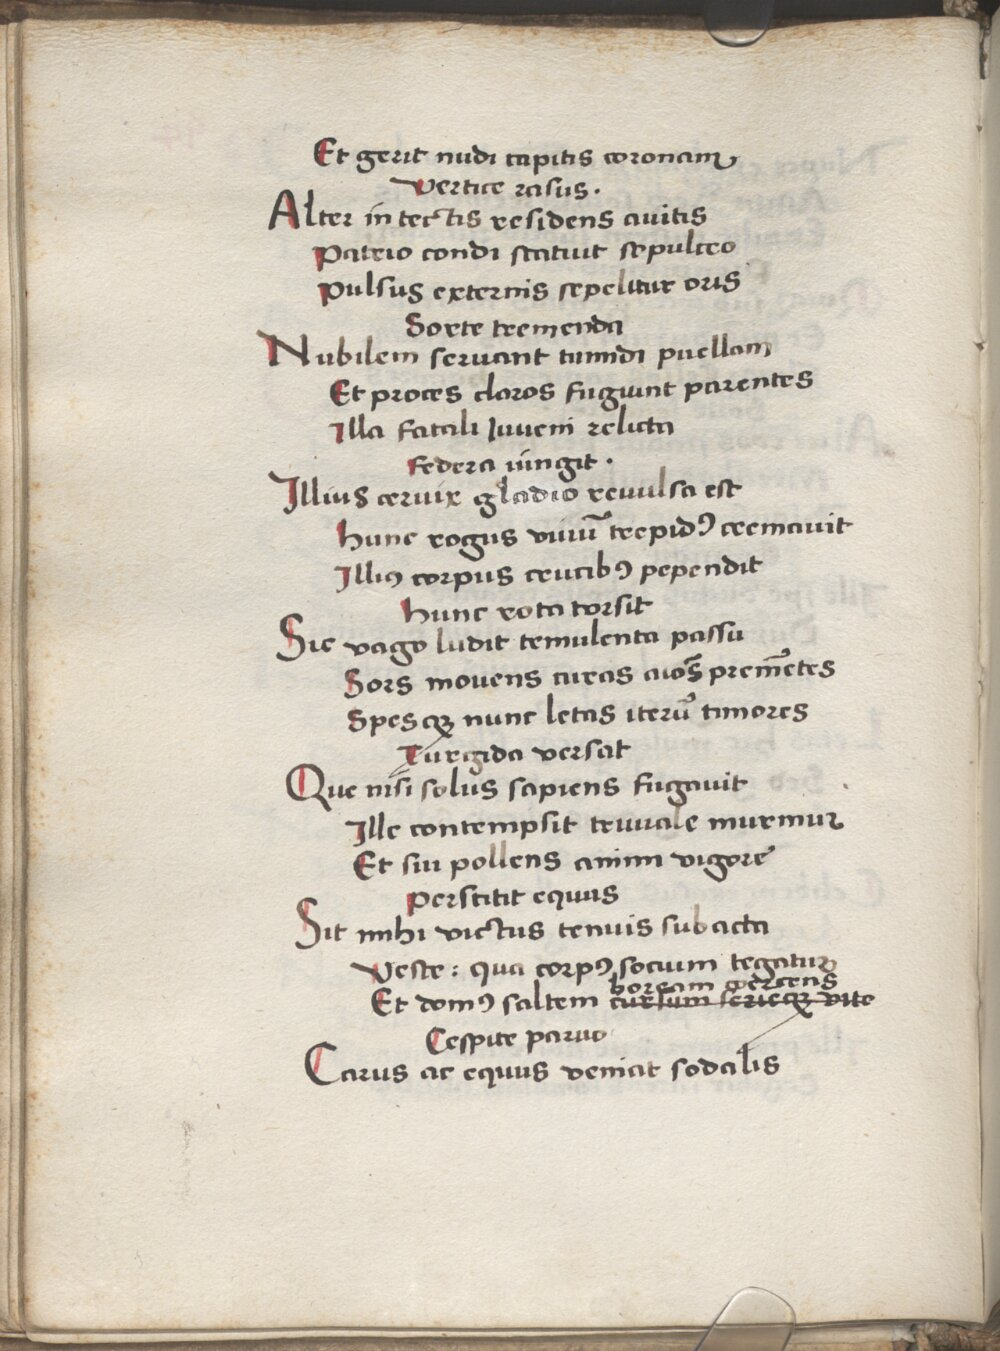 Et gerit nudi capitis coronam
Vertice rasus.
Alter in tectis residens auitis
Patrio condi statuit sepulcro
Pulsus externis sepelitur oris
Sorte tremenda
Nubilem seruant tumidi puellam
Et procos claros fugiunt parentes
Illa fatali iuueni relicta
Federa iungit.
Illius ceruix gladio reuulsa est
Hunc rogus viuū trepidꝰ cremauit
Illiꝰ corpus crucibꝰ pependit
Hunc rota torsit
Sic vago ludit temulenta passu
Sors mouens curas aīos premētes
Spesqꝫ nunc letas iterū timores
Turgida versat
Que nisi solus sapiens fugauit
Ille contempsit triuiale murmur
Et sui pollens animi vigore
Perstitit equus
Sit mihi victus tenuis subacta
Veste: qua corpꝰ socium tegatur
boream coercens
Et domꝰ saltem cursum serieqꝫ vite
Cespite paruo
Carus ac equus veniat sodalis